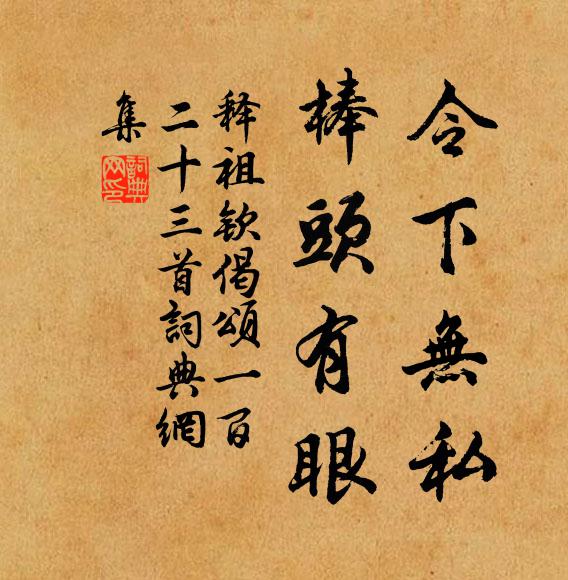 令下無私
棒頭有眼
释祖欽偈頌一百
二十三首詞典網
集
詞典网印